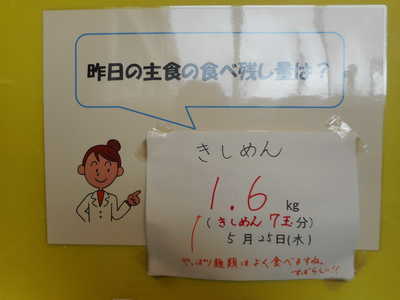 昨日の主食の食べ残し量は？
きしめん
1.6 kg
(きしめん 7玉分)
5月25日(水)
やっぱり麺類はよく食べますね。
すばらしい!!